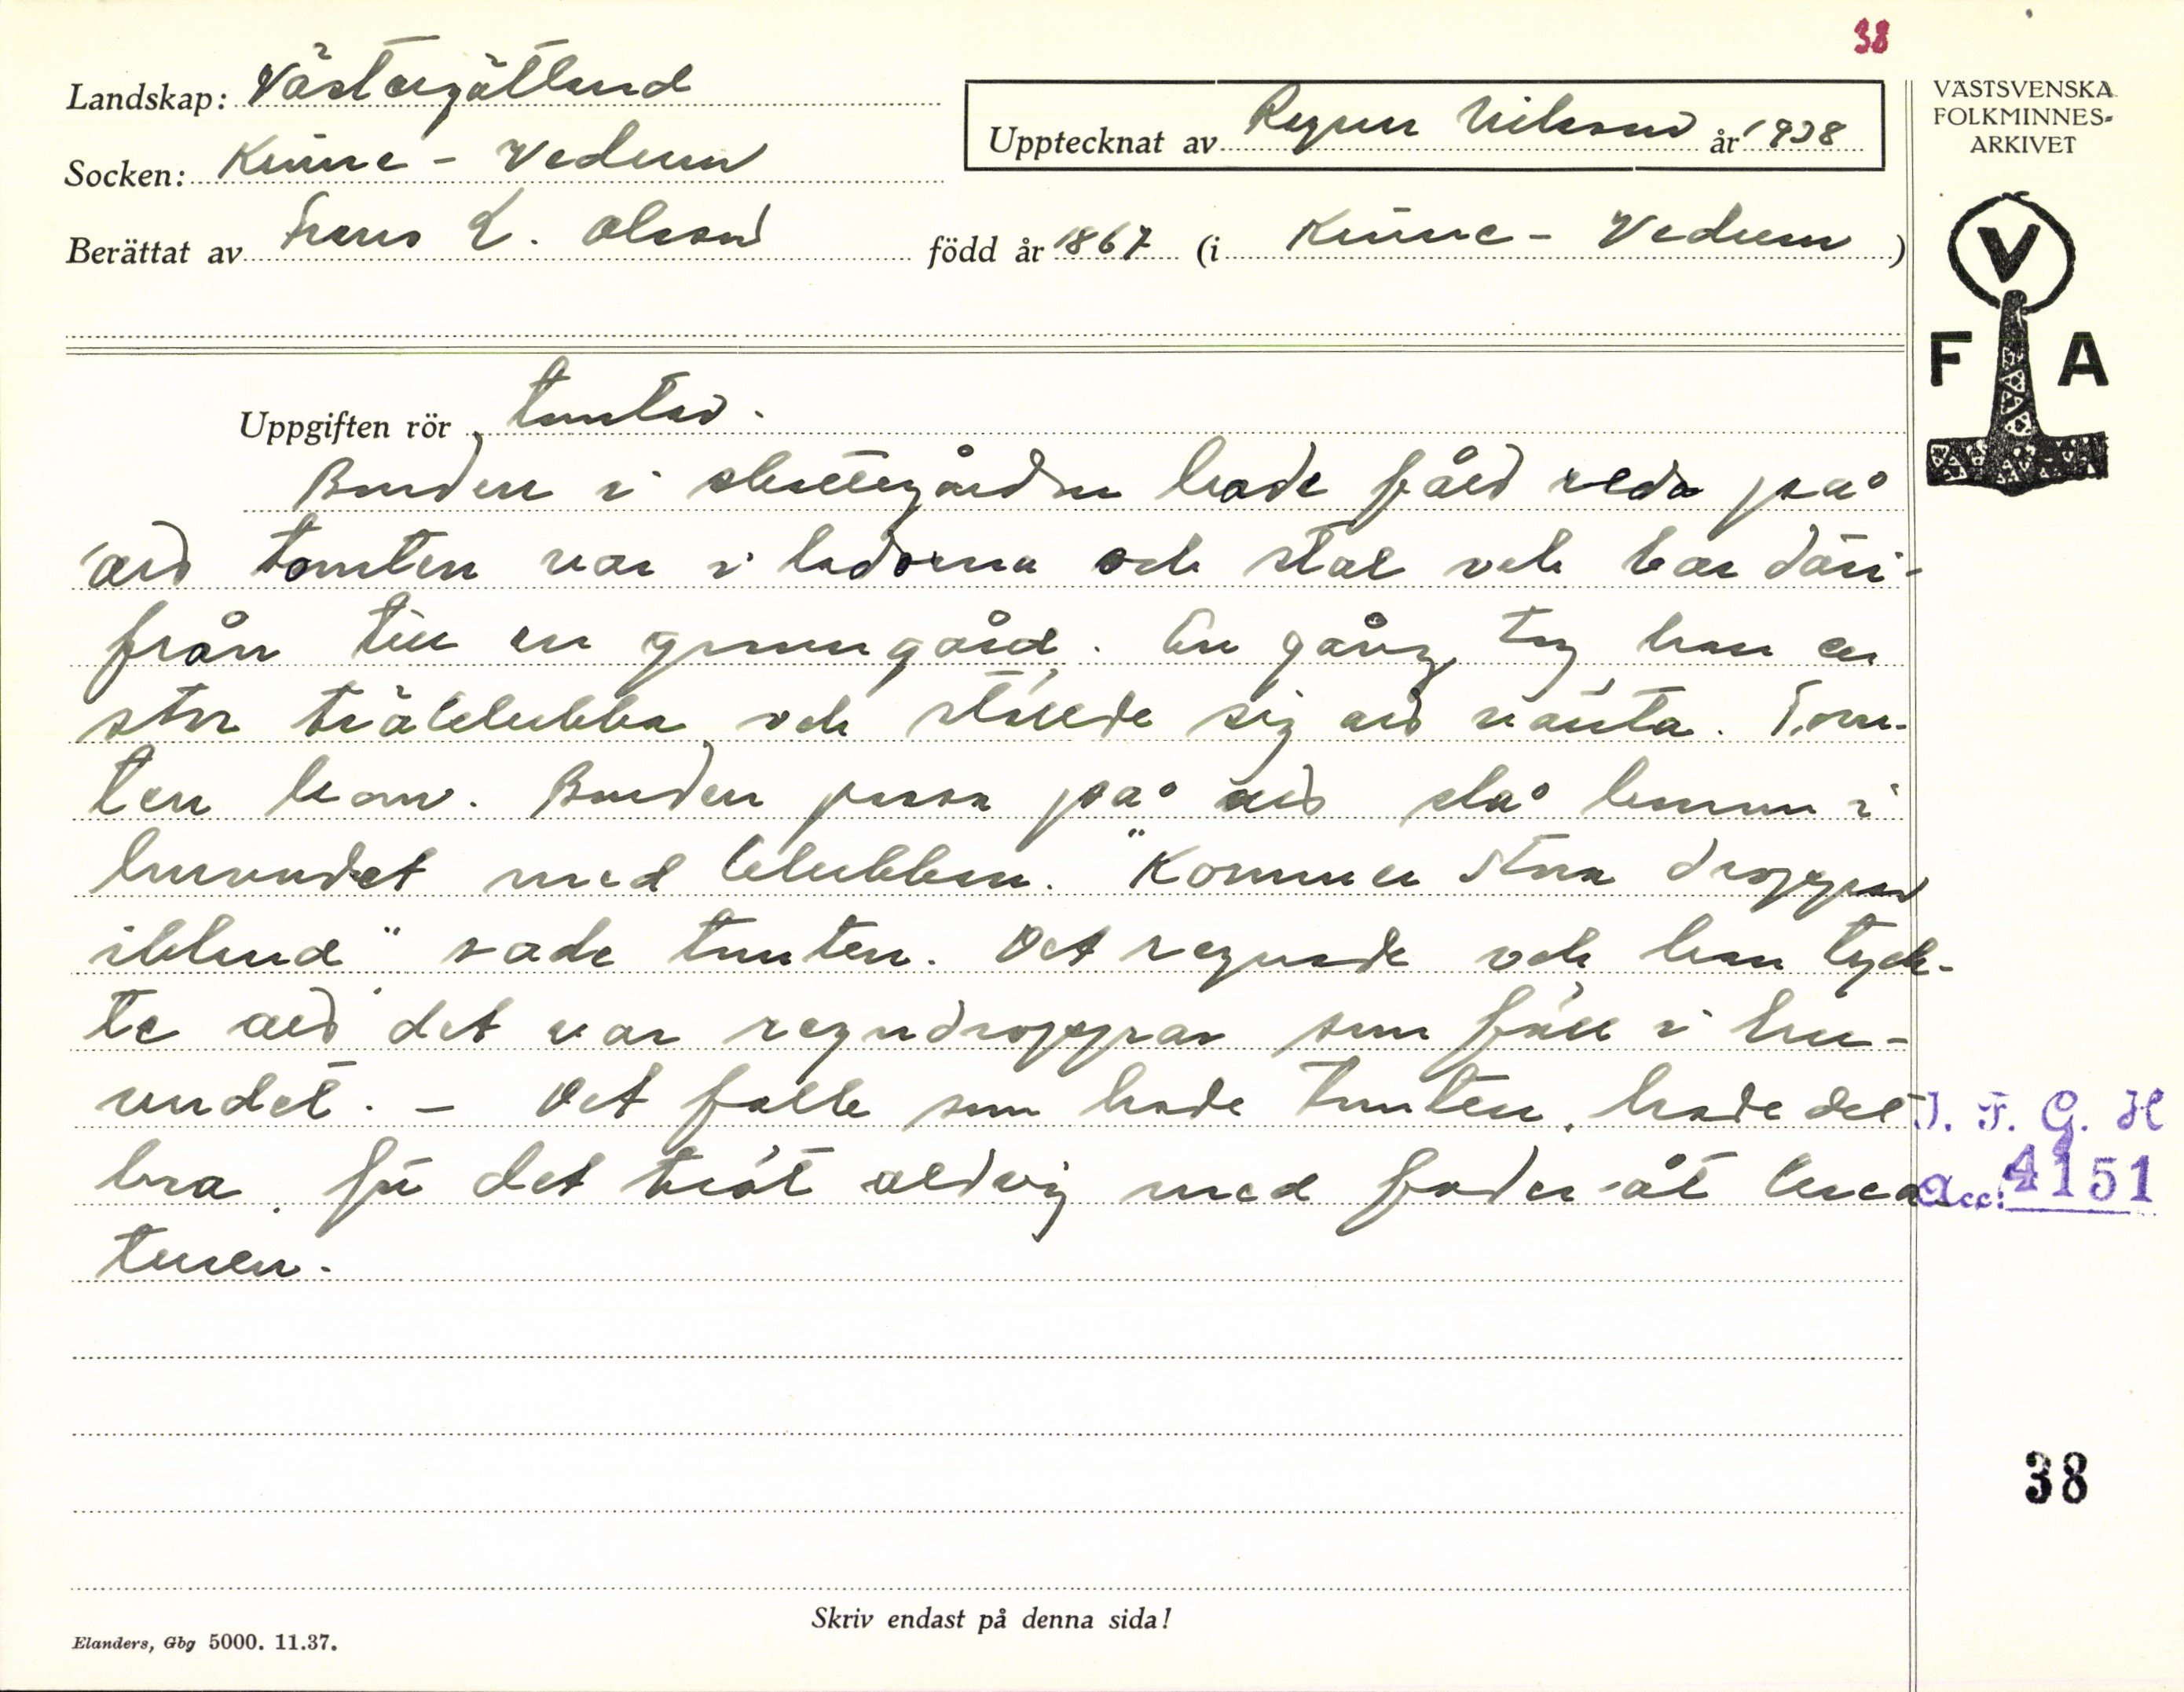 38
Landskap: Västergötland
Upptecknat av Ragnar Nilsson år 1938
VÄSTSVENSKA
FOLKMINNES-
ARKIVET
Socken: Kinne-Vedum
Berättat av Frans L. Olsson född år 1867 (i Kinne-Vedum)
V
F A
Uppgiften rör tomten.
Bonden i slättegården hade fått reda på
att tomten var i ladorna och stal och bar däri-
från till en granngård. En gång tog han en
stor träklubba och ställde sig att vänta. Tom-
ten kom. Bonden passa på att slå honom i
huvudet med klubban. "Kommer stora droppar
ibland" sade tomten. Det regnade och han tyck-
te att det var regndroppar som föll i hu-
vudet. - Det folk som hade tomten, hade det
bra, för det tröt aldrig med foder åt krea
turen.
I. F. G. H
Acc: 4151
38
Skriv endast på denna sida!
Elanders, Gbg 5000. 11.37.